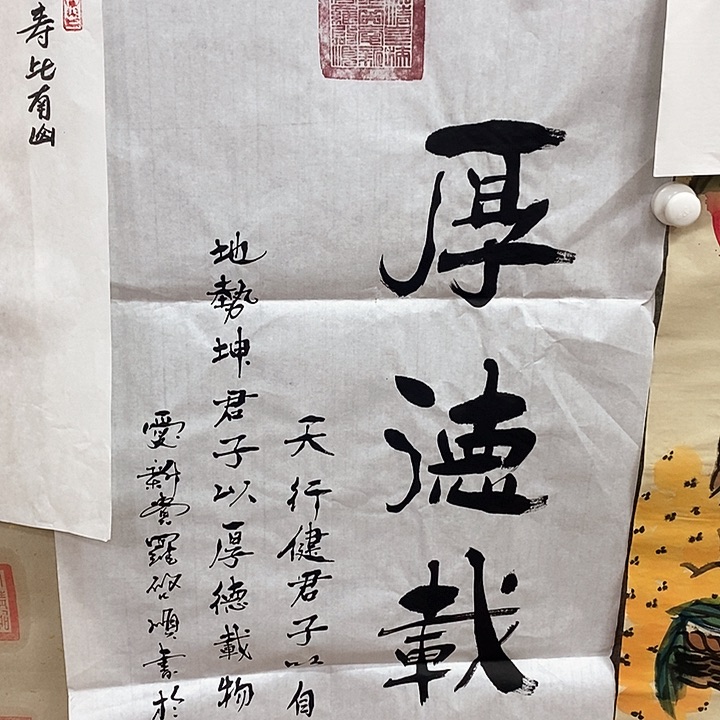 厚德載
天行健君子以自
地勢坤君子以厚德載物
愛新覺羅啟順書於
壽比南山